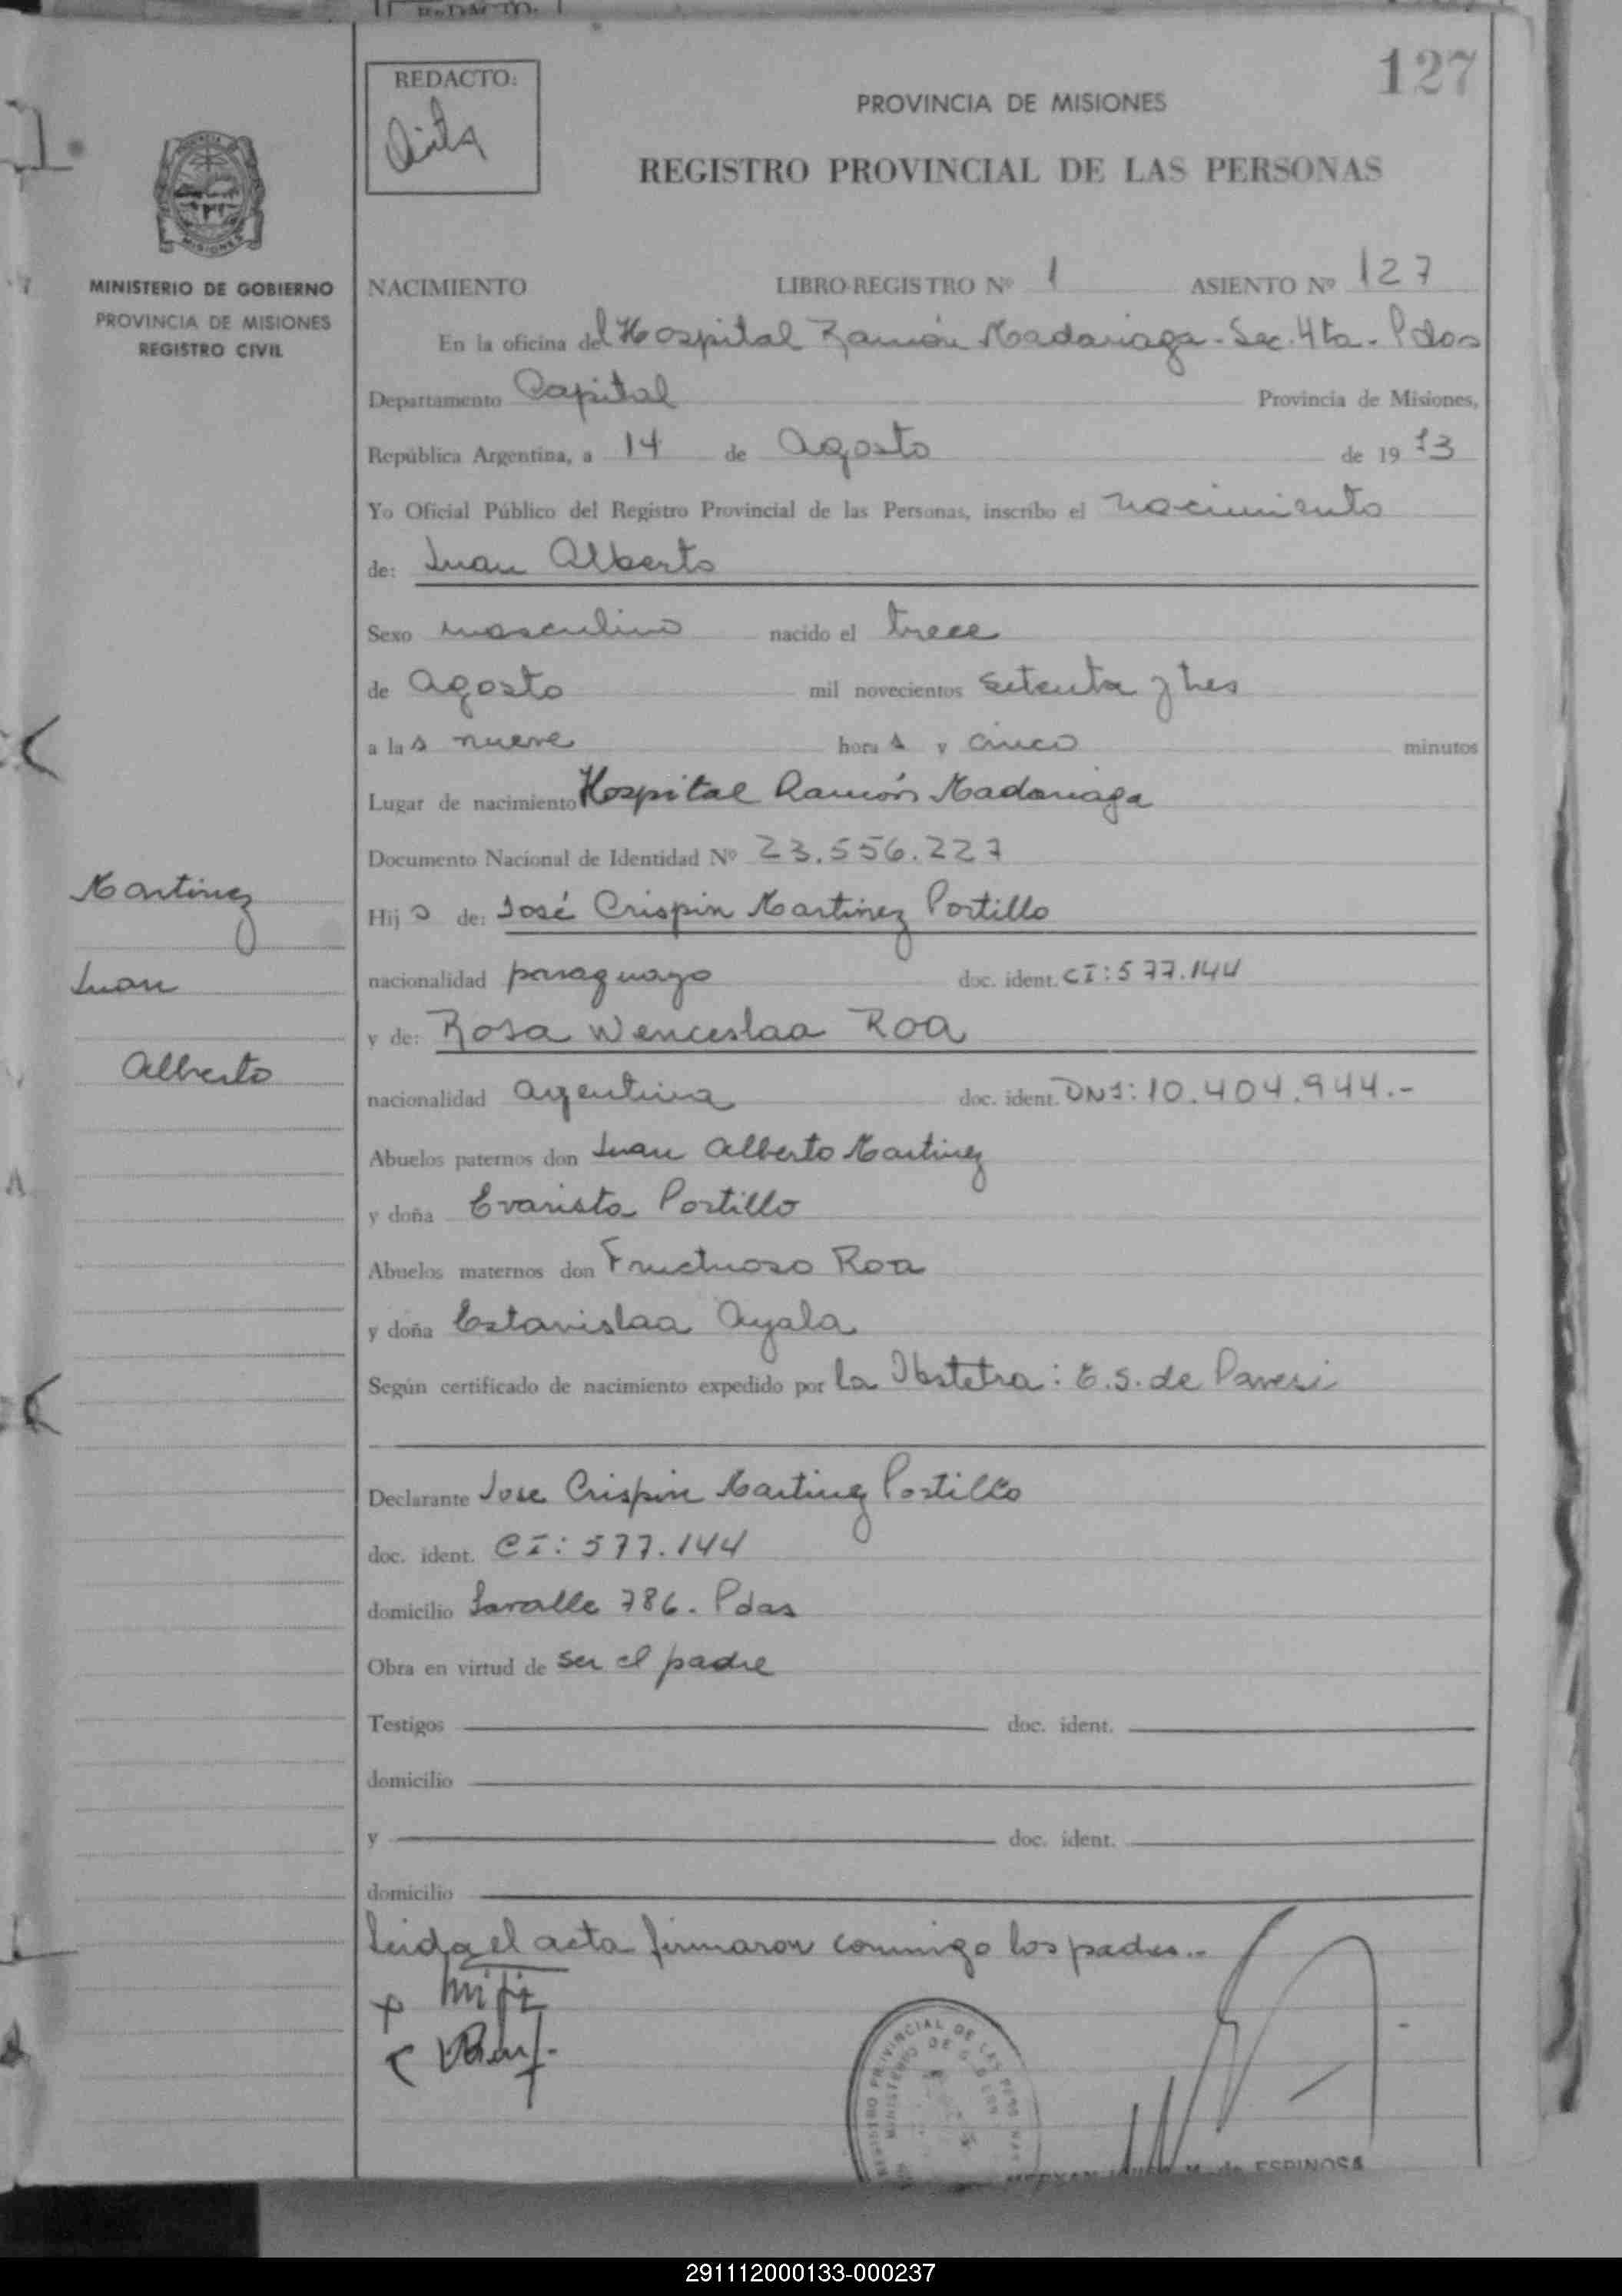 127
REDACTO:
PROVINCIA DE MISIONES
REGISTRO PROVINCIAL DE LAS PERSONAS
MINISTERIO DE GOBIERNO
PROVINCIA DE MISIONES
REGISTRO CIVIL
NACIMIENTO LIBRO-REGISTRO Nº 1 ASIENTO Nº 127
En la oficina del Hospital Ramón Madariaga - Sec. 4ta - Pdas
Departamento Capital Provincia de Misiones,
República Argentina, a 14 de Agosto de 1973
Yo Oficial Público del Registro Provincial de las Personas, inscribo el nacimiento
de: Juan Alberto
Sexo masculino nacido el trece
de Agosto mil novecientos setenta y tres
a las nueve horas y cinco minutos
Lugar de nacimiento Hospital Ramón Madariaga
Documento Nacional de Identidad Nº 23.556.227
Martinez
Hijo de: José Crispin Martinez Portillo
Juan
nacionalidad paraguayo doc. ident. CI: 577.144
y de: Rosa Wenceslaa Roa
Alberto
nacionalidad Argentina doc. ident. DNI: 10.404.944.-
Abuelos paternos don Juan Alberto Martinez
y doña Evarista Portillo
Abuelos maternos don Fructuoso Roa
y doña Estanislaa Ayala
Según certificado de nacimiento expedido por la Obstetra: E.S. de Pavesi
Declarante Jose Crispin Martinez Portillo
doc. ident. CI: 577.144
domicilio Lavalle 786. Pdas
Obra en virtud de ser el padre
Testigos doc. ident.
domicilio
y doc. ident.
domicilio
Leida el acta firmaron conmigo los padres.-
REGISTRO PROVINCIAL DE LAS PERSONAS
MINISTERIO DE GOBIERNO
de ESPINOSA
291112000133-000237